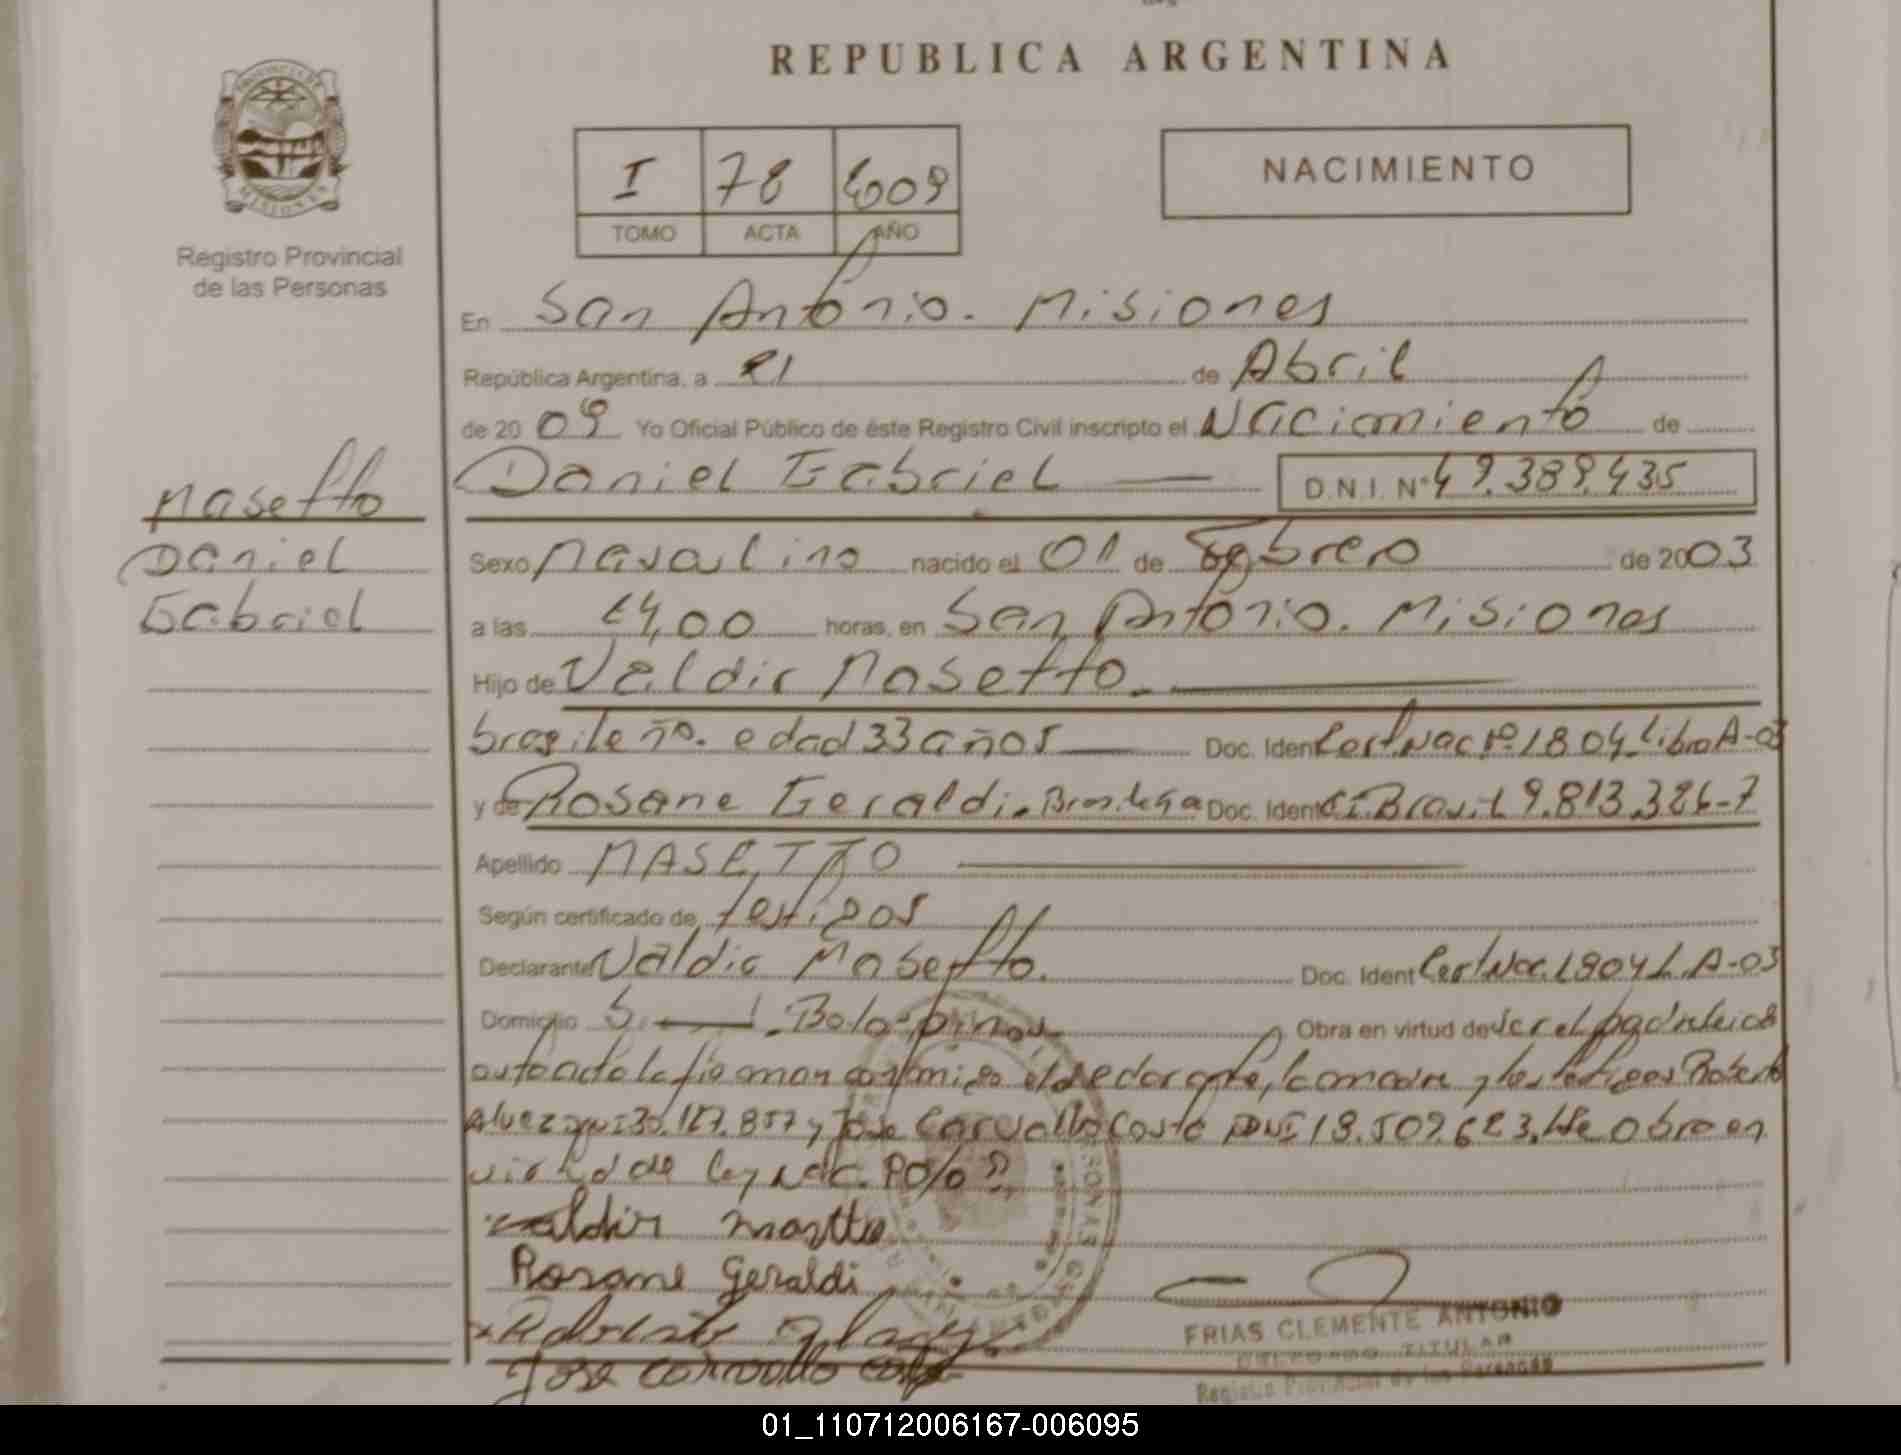 REPUBLICA ARGENTINA
PROVINCIA DE
MISIONES
Registro Provincial
de las Personas
I 78 2009
TOMO ACTA AÑO
NACIMIENTO
En San Antonio. Misiones
República Argentina, a 21 de Abril
de 2009 Yo Oficial Público de éste Registro Civil inscripto el Nacimiento de
Masetto
Daniel Gabriel D.N.I. Nº 49.389.435
Daniel
Gabriel
Sexo Masculino nacido el 01 de Febrero de 2003
a las 24,00 horas, en San Antonio. Misiones
Hijo de Valdir Masetto.
brasileño. edad 33 años Doc. Ident Cert Nac Nº 1804 Libro A-03
y de Rosane Geraldi. Brasileña Doc. Ident C.I. Brasil 9.813.326-7
Apellido MASETTO
Según certificado de testigos
Declarante Valdir Masetto. Doc. Ident Cert Nac. 1804 L. A-03
Domicilio S. Obra en virtud de ser el padre leida
el acta la firman conmigo el declarante, la madre y los testigos Roberto
Alvez 30.127.857 y Jose Carvallo Costa DNI 18.509.623. Obra en
virtud de ley Nac.
Valdir Masetto
Rosane Geraldi
Jose Carvallo Costa
FRIAS CLEMENTE ANTONIO
DELEGADO TITULAR
Registro Provincial de las Personas
01_110712006167-006095